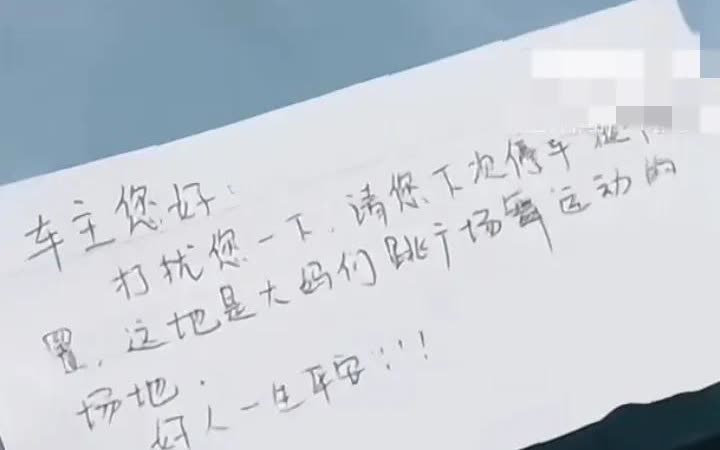 车主您好:
打扰您一下,请您下次停车
置,这地是大妈们跳广场舞运动的
场地.
好人一生平安!!!